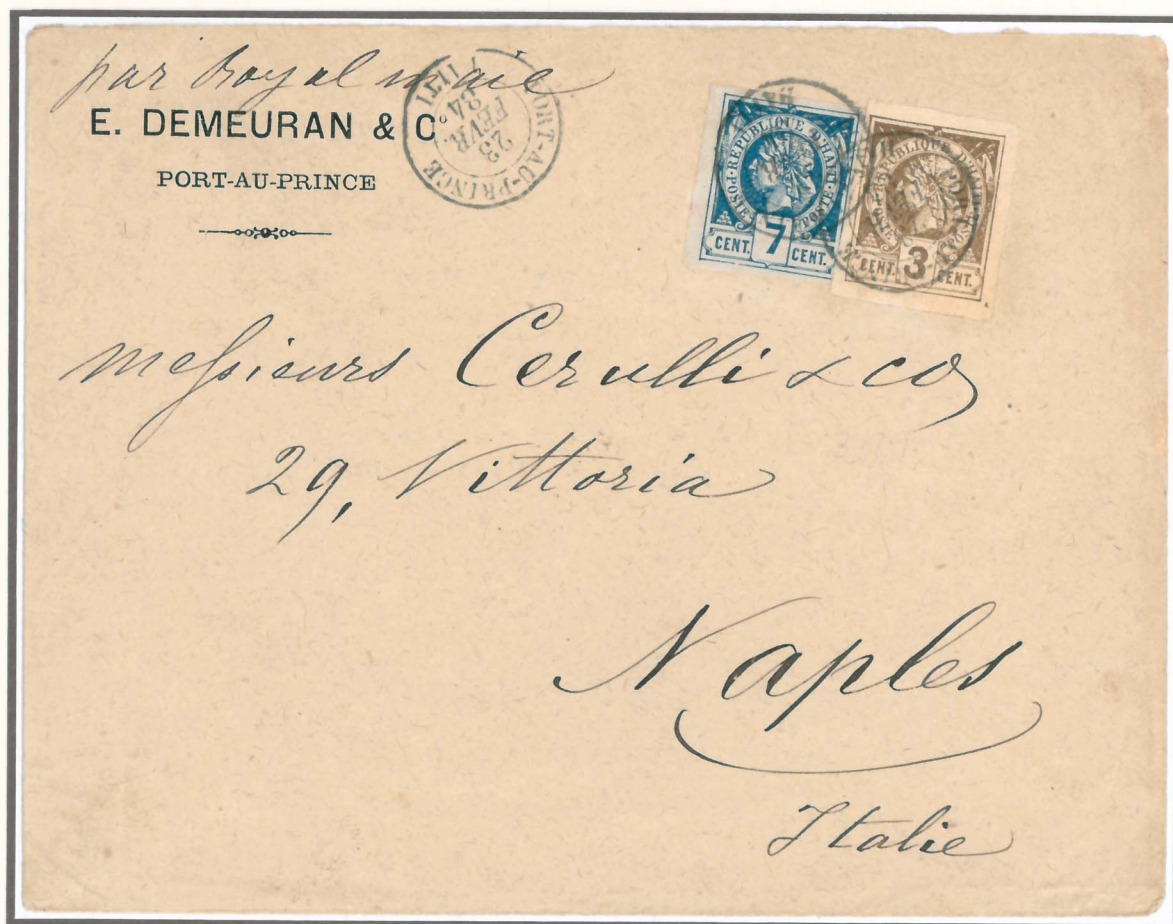 par Royal maie
E. DEMEURAN & Co
PORT-AU-PRINCE
PORT-AU-PRINCE
23
FEVR.
84
HAITI
POSTE·REPUBLIQUE D'HAITI·POSTE
CENT. 7 CENT.
POSTE·REPUBLIQUE D'HAITI·POSTE
CENT. 3 CENT.
messieurs Cerulli & co
29, Vittoria
Naples
Italie